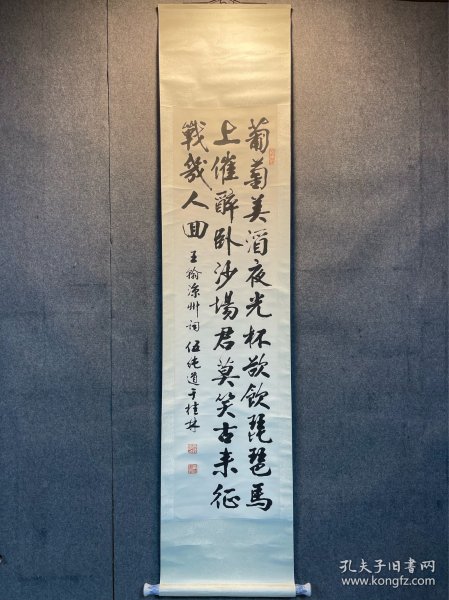 葡萄美酒夜光杯欲飲琵琶馬
上催醉卧沙場君莫笑古来征
戰幾人回
王翰涼州詞 伍纯道于桂林
孔夫子旧书网
www.kongfz.com